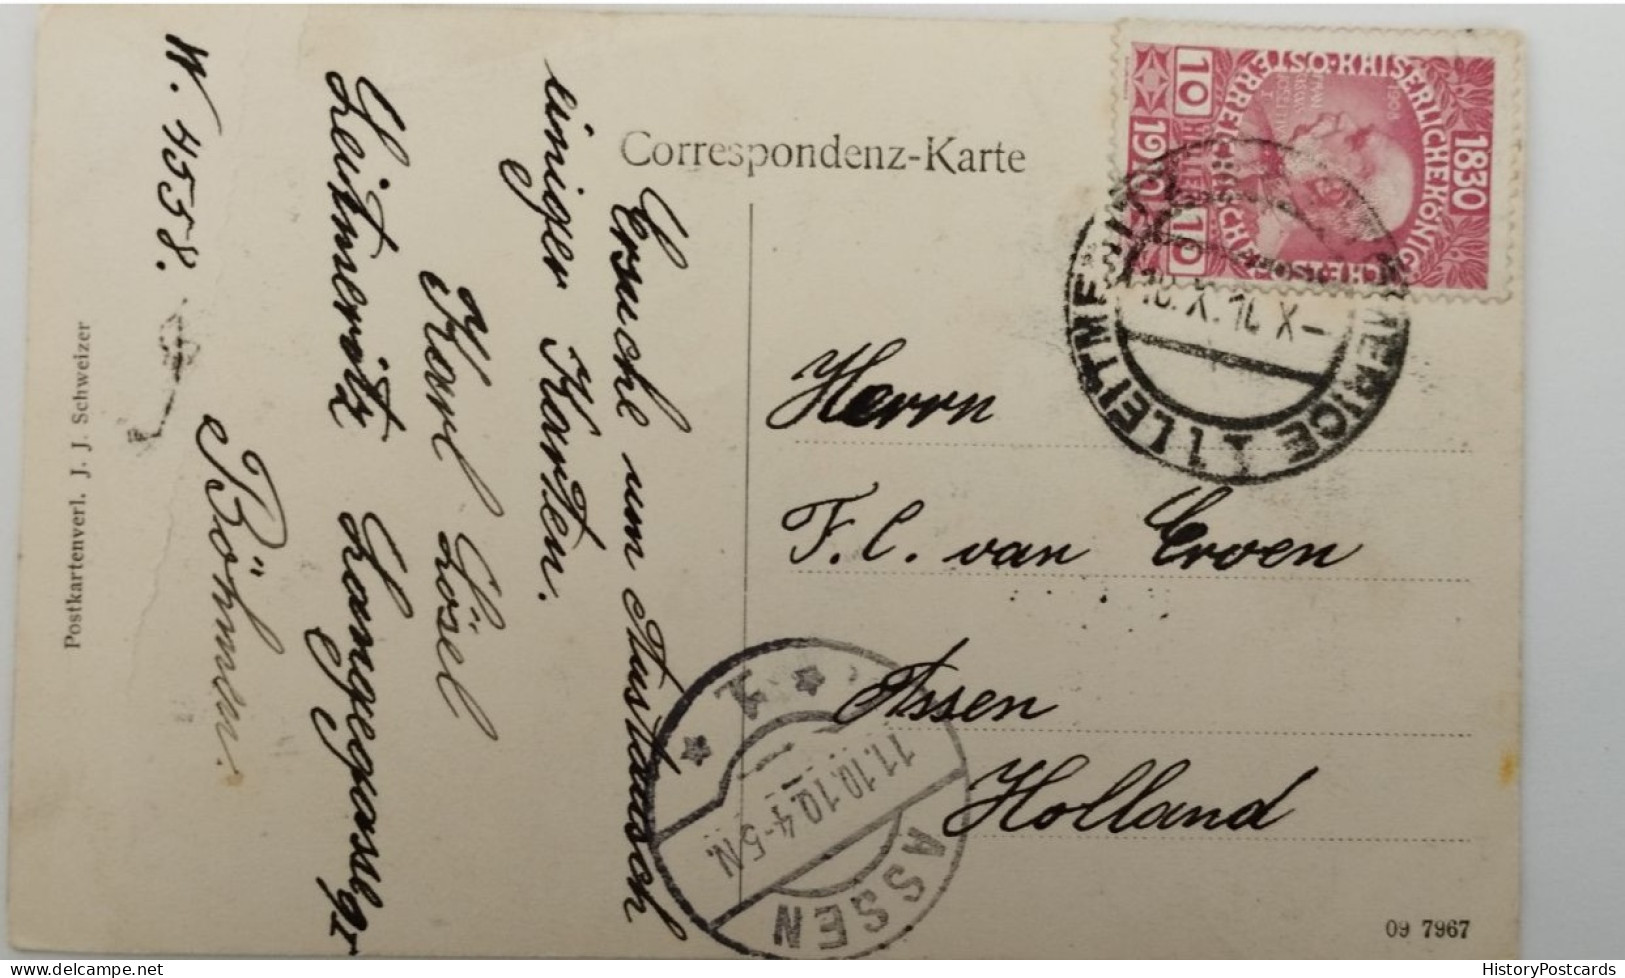 Correspondenz-Karte
Ersuche um Austausch
einiger Karten.
Karl Lösel
Leitmeritz Langegasse 92
Böhmen.
W. 4558.
Postkartenverl. J. J. Schweizer
Herrn
F. C. van Erven
Assen
Holland
09 7967
1830 1910
ÖSTERREICHISCHE
KAISERLICHE KÖNIGLICHE
10 HELLER 10
1908
LEITMERITZ 1
LITOMĚŘICE 1
10. X. 10 X–
ASSEN
11.10.10.4-5N.
HistoryPostcards
delcampe.net